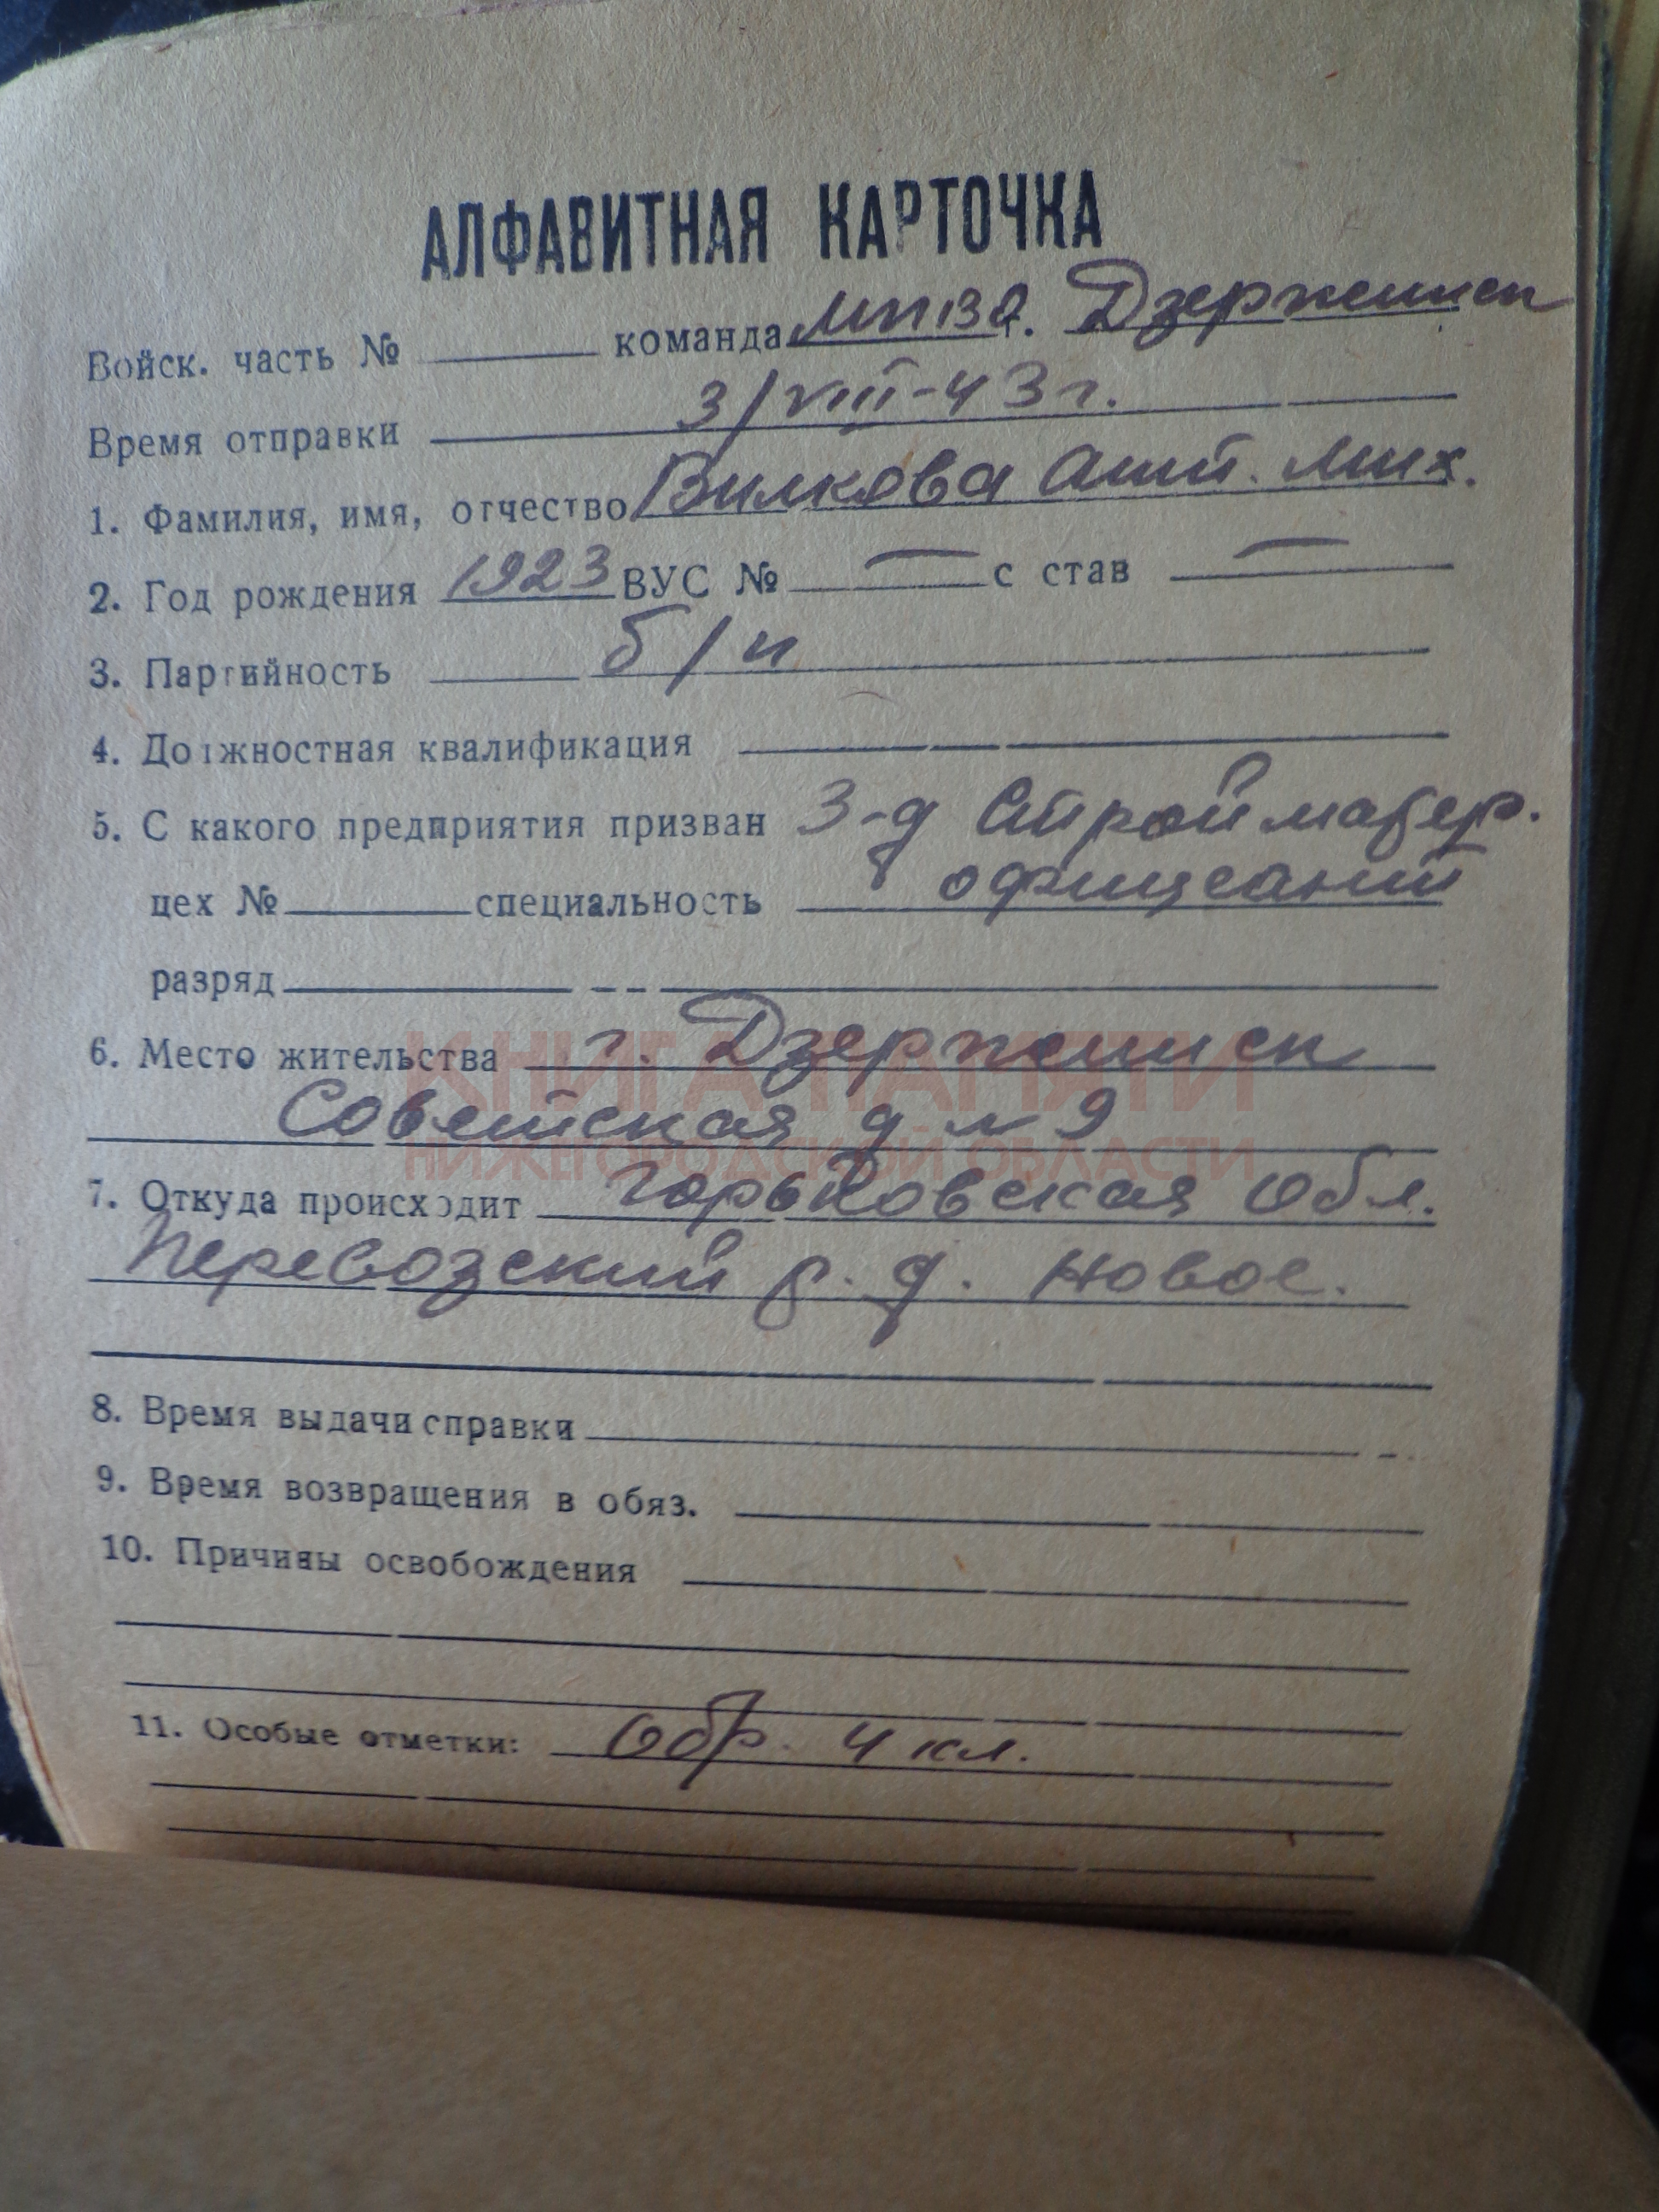 АЛФАВИТНАЯ КАРТОЧКА
Войск. часть № команда МПВО г. Дзержинск
Время отправки 3/VIII-43 г.
1. Фамилия, имя, отчество Вилкова Ант. Мих.
2. Год рождения 1923 ВУС № — состав —
3. Партийность б/п
4. Должностная квалификация
5. С какого предприятия призван З-д Строй матер.
цех № специальность официант
разряд
6. Место жительства г. Дзержинск
КНИГА ПАМЯТИ
Советская д № 9
НИЖЕГОРОДСКОЙ ОБЛАСТИ
7. Откуда происходит Горьковская обл.
Перевозский р. д. Новое.
8. Время выдачи справки
9. Время возвращения в обяз.
10. Причины освобождения
11. Особые отметки: Обр. 4 кл.